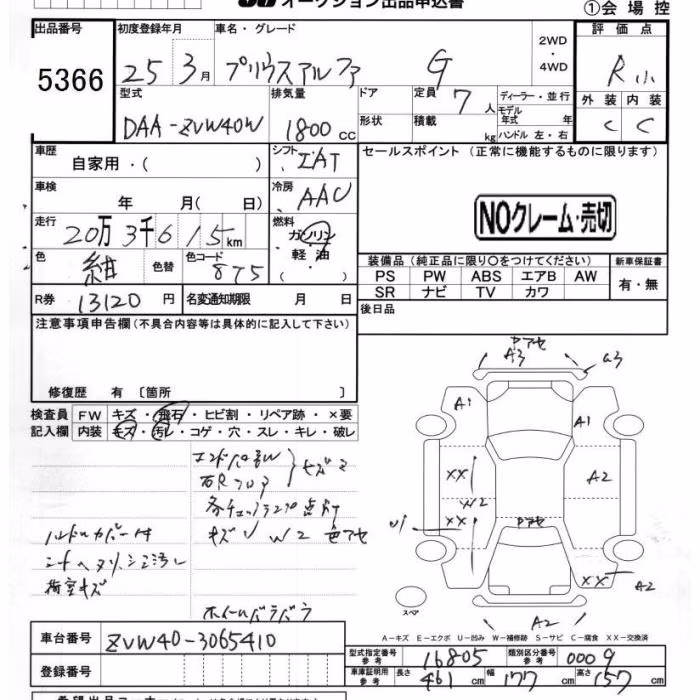 オークション出品申込書
①会場控
出品番号 初度登録年月 車名・グレード 2WD・4WD 評価点
5366 25 3月 プリウスアルファ G R
型式 排気量 ドア 定員 7人 ディーラー・並行 外装 内装
モデル年式 年
DAA-ZVW40W 1800cc 形状 積載 kg ハンドル 左・右 C C
車歴 自家用・( ) シフト IAT セールスポイント(正常に機能するものに限ります)
車検 年 月( 日) 冷房 AAC
NOクレーム・売切
走行 20万3千615km 燃料 ガソリン・軽油・( )
色 紺 色替 色コード 875 装備品(純正品に限り○をつけてください) 新車保証書
PS PW ABS エアB AW 有・無
SR ナビ TV カワ
R券 13120円 名変通知期限 月 日 後日品
注意事項申告欄(不具合内容等は具体的に記入して下さい)
修復歴 有 [箇所 ]
A3 a3
A1 A1
XX A2
W2
XX
XX A2
A2
検査員記入欄 FW キズ・飛石・ヒビ割・リペア跡・×要
内装 キズ・汚レ・コゲ・穴・スレ・キレ・破レ
キズ W2 色アセ
ハンドルカバー付
荷室キズ
ホイールバラバラ
スペア
A-キズ E-エクボ U-凹み W-補修跡 S-サビ C-腐食 XX-交換済
車台番号 ZVW40-3065410
型式指定番号 参考 16805 類別区分番号 参考 0009
登録番号 車庫証明用 参考 長さ 461cm 幅 177cm 高さ 157cm